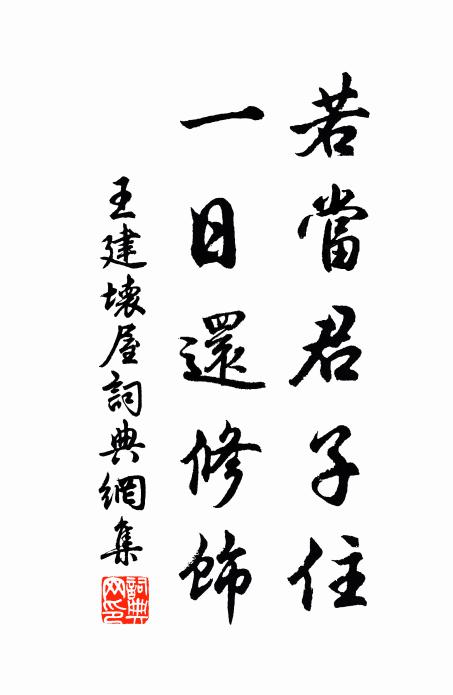 若當君子住
一日還修飾
王建壞屋詞典網集
詞典網印